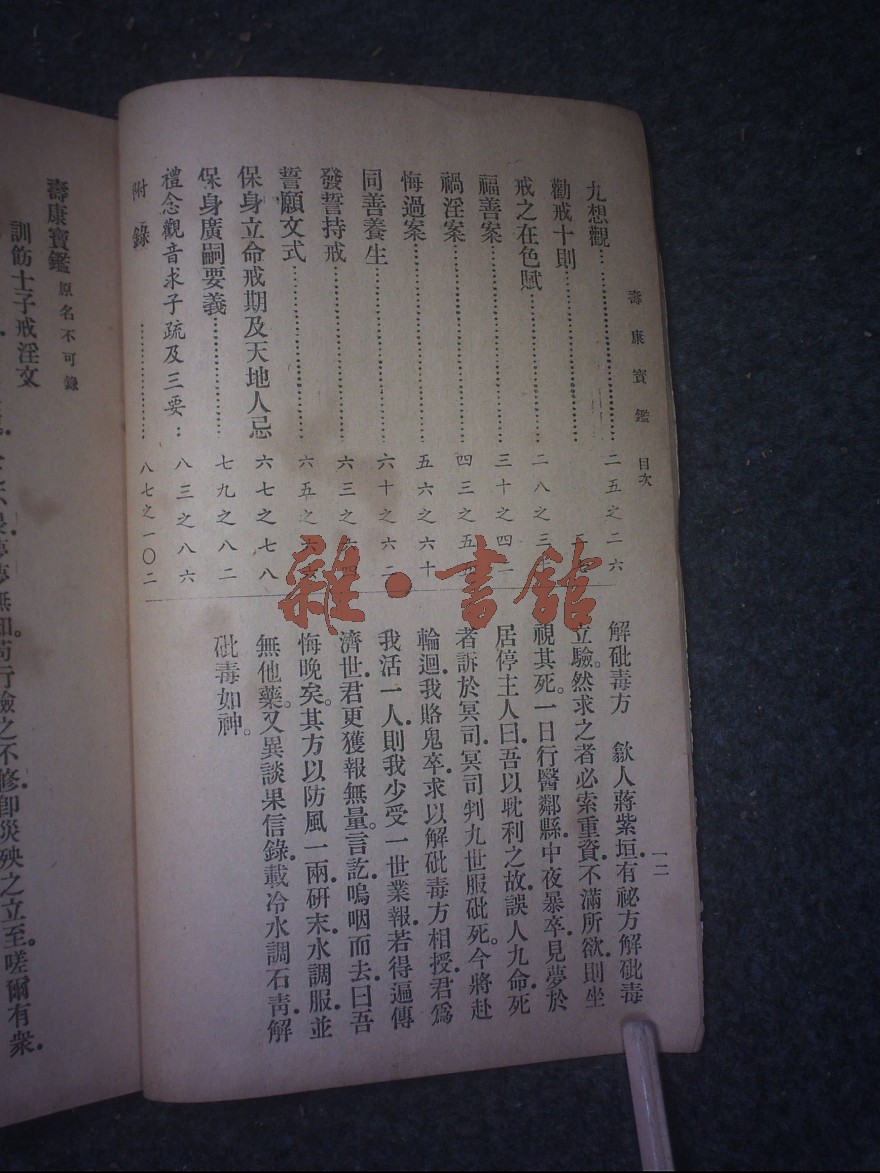 壽康寶鑑 目次
一二
九想觀 二五之二六
勸戒十則
戒之在色賦 二八之三
福善案 三十之四二
禍淫案 四三之五
悔過案 五六之六十
同善養生 六十之六二
發誓持戒 六三之六四
誓願文式 六五之六
保身立命戒期及天地人忌 六七之七八
保身廣嗣要義 七九之八二
禮念觀音求子疏及三要 八三之八六
附錄 八七之一〇二
解砒毒方 歙人蔣紫垣.有祕方解砒毒
立驗。然求之者必索重資.不滿所欲.則坐
視其死。一日行醫鄰縣.中夜暴卒.見夢於
居停主人曰.吾以耽利之故.誤人九命.死
者訴於冥司.冥司判九世服砒死。今將赴
輪迴.我賂鬼卒.求以解砒毒方相授.君爲
我活一人.則我少受一世業報.若得遍傳
濟世.君更獲報無量。言訖.嗚咽而去.曰吾
悔晚矣。其方以防風一兩.研末.水調服.並
無他藥。又異談果信錄.載冷水調石靑.解
砒毒如神。
雜·書館
壽康寶鑑 原名不可錄
訓飭士子戒淫文
無知.苟行檢之不修.卽災殃之立至。嗟爾有衆.